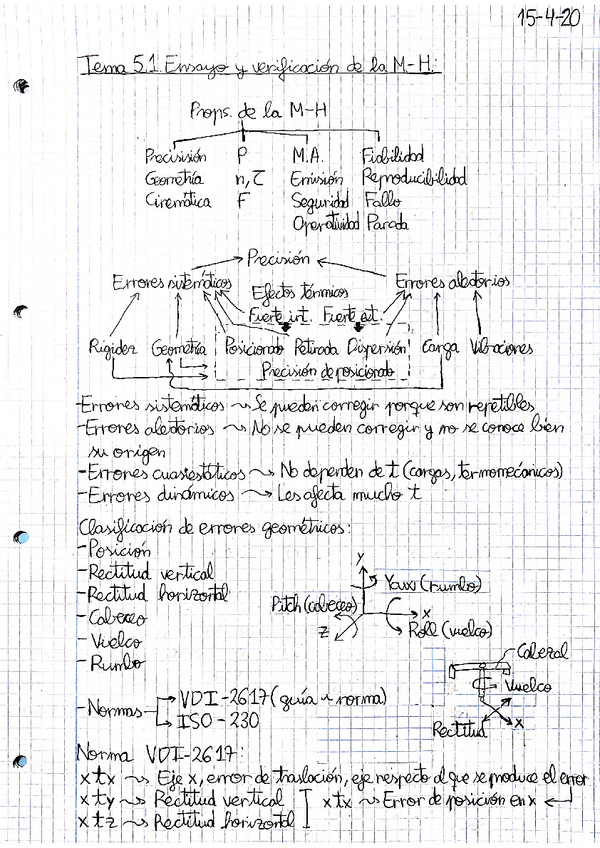 15-4-20
Tema 5.1. Ensayo y verificación de la M-H:
Props. de la M-H
Precisión P M.A. Fiabilidad
Geometría n, τ Emisión Reproducibilidad
Cinemática F Seguridad Fallo
Operatividad Parada
Precisión
Errores sistemáticos Errores aleatorios
Efectos térmicos
Fuente int. Fuente ext.
Rigidez Geometría Posicionado Retirada Dispersión Carga Vibraciones
Precisión de posicionado
-Errores sistemáticos ~> Se pueden corregir porque son repetibles
-Errores aleatorios ~> No se pueden corregir y no se conoce bien
su origen
-Errores cuasiestáticos ~> No dependen de t (cargas, termomecánicos)
-Errores dinámicos ~> Les afecta mucho t
Clasificación de errores geométricos:
-Posición
-Rectitud vertical
-Rectitud horizontal
-Cabeceo
-Vuelco
-Rumbo
y
Yaw (rumbo)
Pitch (cabeceo)
x
z
Roll (vuelco)
Cabezal
Vuelco
x
Rectitud
-Normas → VDI-2617 (guía ~ norma)
→ ISO-230
Norma VDI-2617:
xtx ~> Eje x, error de traslación, eje respecto al que se produce el error
xty ~> Rectitud vertical xtx ~> Error de posición en x
xtz ~> Rectitud horizontal